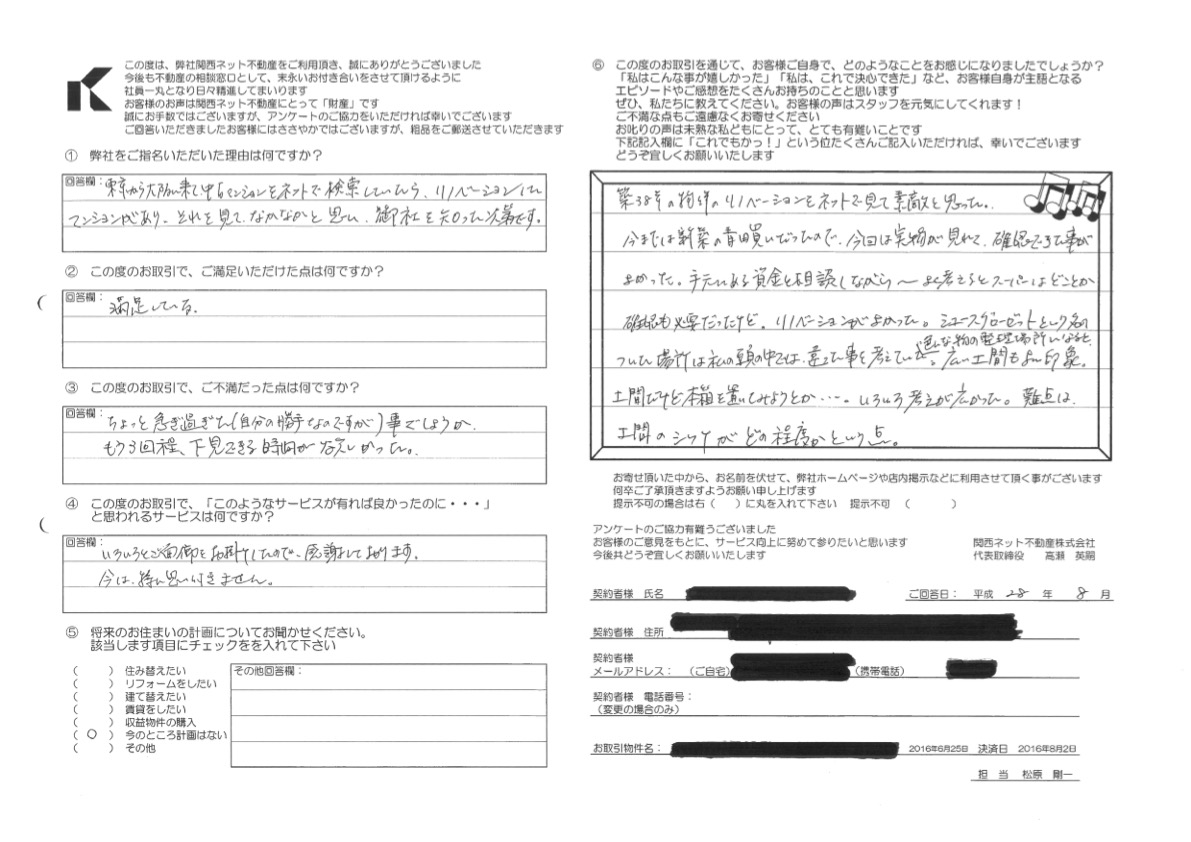 この度は、弊社関西ネット不動産をご利用頂き、誠にありがとうございました
今後も不動産の相談窓口として、末永いお付き合いをさせて頂けるように
社員一丸となり日々精進してまいります
お客様のお声は関西ネット不動産にとって「財産」です
誠にお手数ではございますが、アンケートのご協力をいただければ幸いでございます
ご回答いただきましたお客様にはささやかではございますが、粗品をご郵送させていただきます
① 弊社をご指名いただいた理由は何ですか？
回答欄：東京から大阪に来て中古マンションをネットで検索していたら、リノベーションした
マンションがあり、それを見て、なかなかと思い、御社を知った次第です。
② この度のお取引で、ご満足いただけた点は何ですか？
回答欄：満足している。
③ この度のお取引で、ご不満だった点は何ですか？
回答欄：ちょっと急ぎ過ぎた(自分の勝手なのですが)事でしょうか
もう3回程、下見できる時間が欲しかった。
④ この度のお取引で、「このようなサービスが有れば良かったのに・・・」
と思われるサービスは何ですか？
回答欄：いろいろとご面倒をお掛けしたので、感謝しております。
今は、特に思い付きません。
⑤ 将来のお住まいの計画についてお聞かせください。
該当します項目にチェックをを入れて下さい
（　　） 住み替えたい
（　　） リフォームをしたい
（　　） 建て替えたい
（　　） 賃貸をしたい
（　　） 収益物件の購入
（ ○ ） 今のところ計画はない
（　　） その他
その他回答欄：
⑥ この度のお取引を通じて、お客様ご自身で、どのようなことをお感じになりましたでしょうか？
「私はこんな事が嬉しかった」「私は、これで決心できた」など、お客様自身が主語となる
エピソードやご感想をたくさんお持ちのことと思います
ぜひ、私たちに教えてください。お客様の声はスタッフを元気にしてくれます！
ご不満な点もご遠慮なくお寄せください
お叱りの声は未熟な私どもにとって、とても有難いことです
下記記入欄に「これでもかっ！」という位たくさんご記入いただければ、幸いでございます
どうぞ宜しくお願いいたします
築38年の物件のリノベーションをネットで見て素敵と思った。
今までは新築の青田買いだったので、今回は実物が見れて、確認できた事が
よかった。手元にある資金と相談しながら〜よく考えるとスーパーはどことか
確認も必要だったけど、リノベーションがよかった。シューズクローゼットという名の
ついた場所は私の頭の中では、違った事を考えていた。色んな物の整理場所になると。広い土間もよい印象。
土間だけど本箱を置いてみようとか…。いろいろ考えが広がった。難点は、
土間のシッケがどの程度かという点。
お寄せ頂いた中から、お名前を伏せて、弊社ホームページや店内掲示などに利用させて頂く事がございます
何卒ご了承頂きますようお願い申し上げます
提示不可の場合は右（　　）に丸を入れて下さい　提示不可　（　　　　）
アンケートのご協力有難うございました
お客様のご意見をもとに、サービス向上に努めて参りたいと思います
今後共どうぞ宜しくお願いいたします
関西ネット不動産株式会社
代表取締役　高瀬　英賜
契約者様 氏名
ご回答日：　平成　28　年　8　月
契約者様 住所
契約者様
メールアドレス：　（ご自宅）　（携帯電話）
契約者様　電話番号：
（変更の場合のみ）
お取引物件名：　2016年6月25日　決済日　2016年8月2日
担　当　松原　剛一